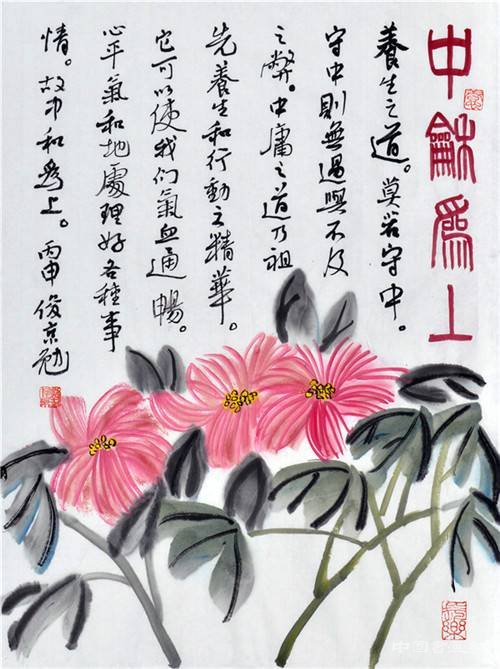 中龢爲上
養生之道。莫若守中。
守中則無過與不及
之弊。中庸之道乃祖
先養生和行動之精華。
它可以使我們氣血通暢。
心平氣和地處理好各種事
情。故中和爲上。丙申 俊京